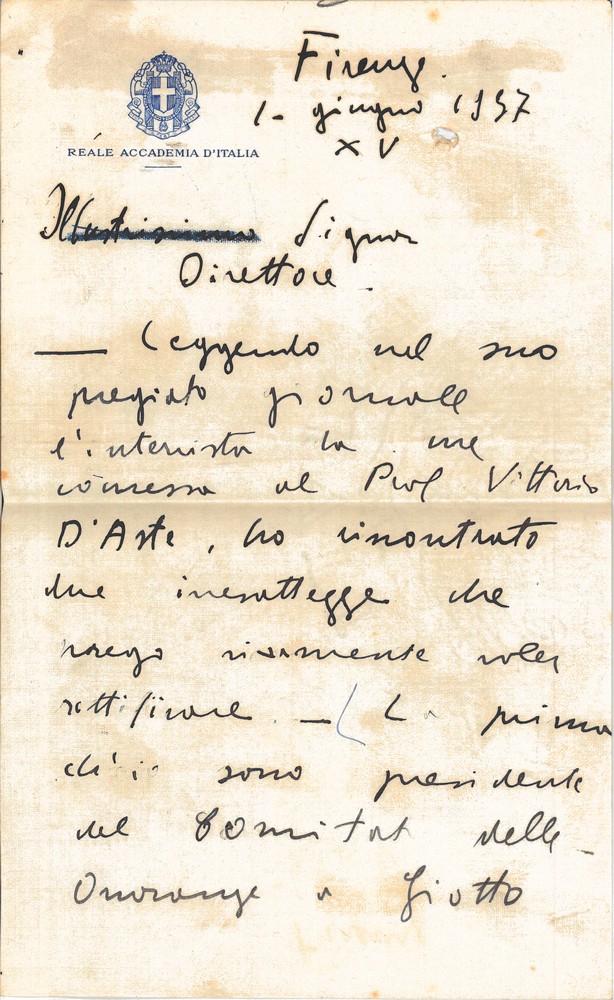 REALE ACCADEMIA D'ITALIA
Firenze.
1- giugno 1937
XV
Illustrissimo Signor
Direttore.
— Leggendo nel suo
pregiato giornale
l'intervista da me
concessa al Prof Vittorio
D'Aste, ho riscontrato
due inesattezze che
prego vivamente voler
rettificare. — ( La prima
ch'io sono presidente
del Comitato delle
Onoranze a Giotto